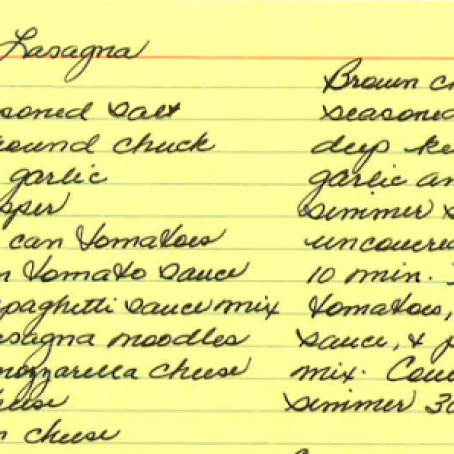 Lasagna
soned salt
ound chuck
garlic
pper
can tomatoes
n tomato sauce
spaghetti sauce mix
asagna noodles
mozzarella cheese
heese
n cheese
Brown c
seasoned
deep ke
garlic an
simmer s
uncovere
10 min.
tomatoes,
sauce, & p
mix. Cove
simmer 30